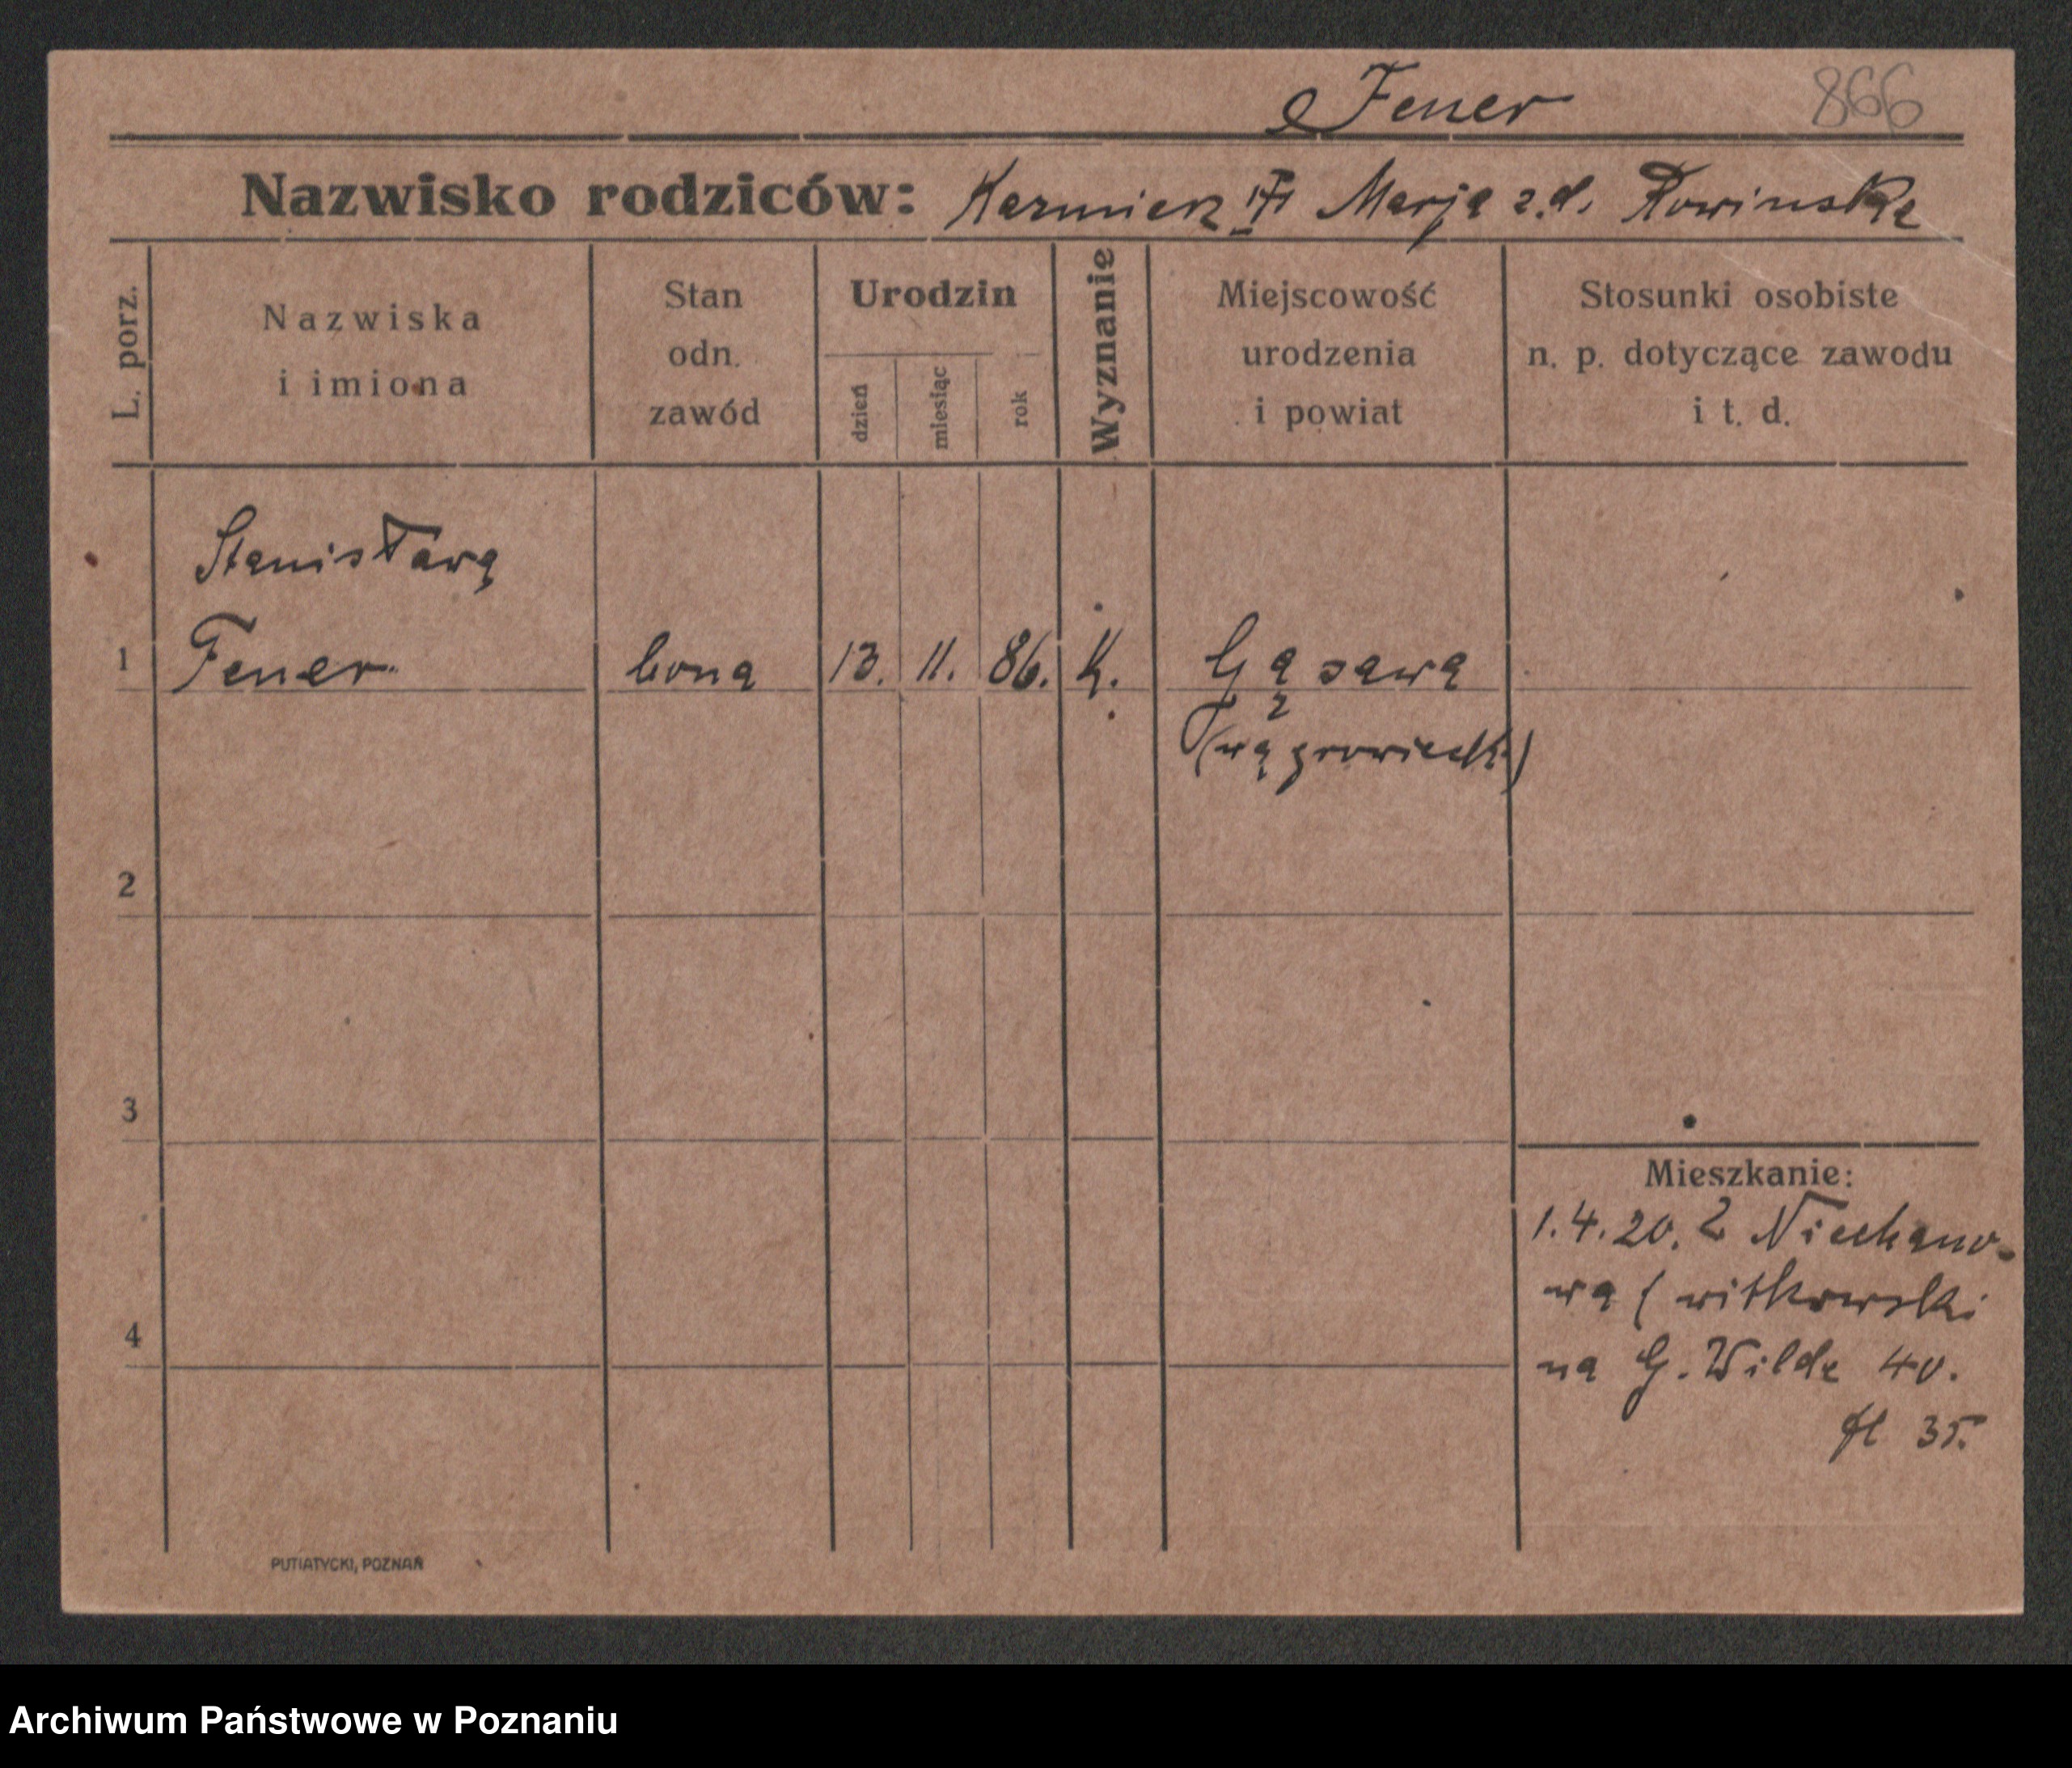 Fener 866
Nazwisko rodziców: Kazmierz Marja z.d. Rowinska
L. porz.
Nazwiska
i imiona
Stan
odn.
zawód
Urodzin
dzień
miesiąc
rok
Wyznanie
Miejscowość
urodzenia
i powiat
Stosunki osobiste
n. p. dotyczące zawodu
i t. d.
Stanisława
1 Fener bona 13. 11. 86. K. Gąsawa
(wągrowiecki)
2
3
Mieszkanie:
1.4.20. z Niechano-
wa (witkowski
4
na G. Wilde 40.
35.
PUTIATYCKI, POZNAŃ
Archiwum Państwowe w Poznaniu